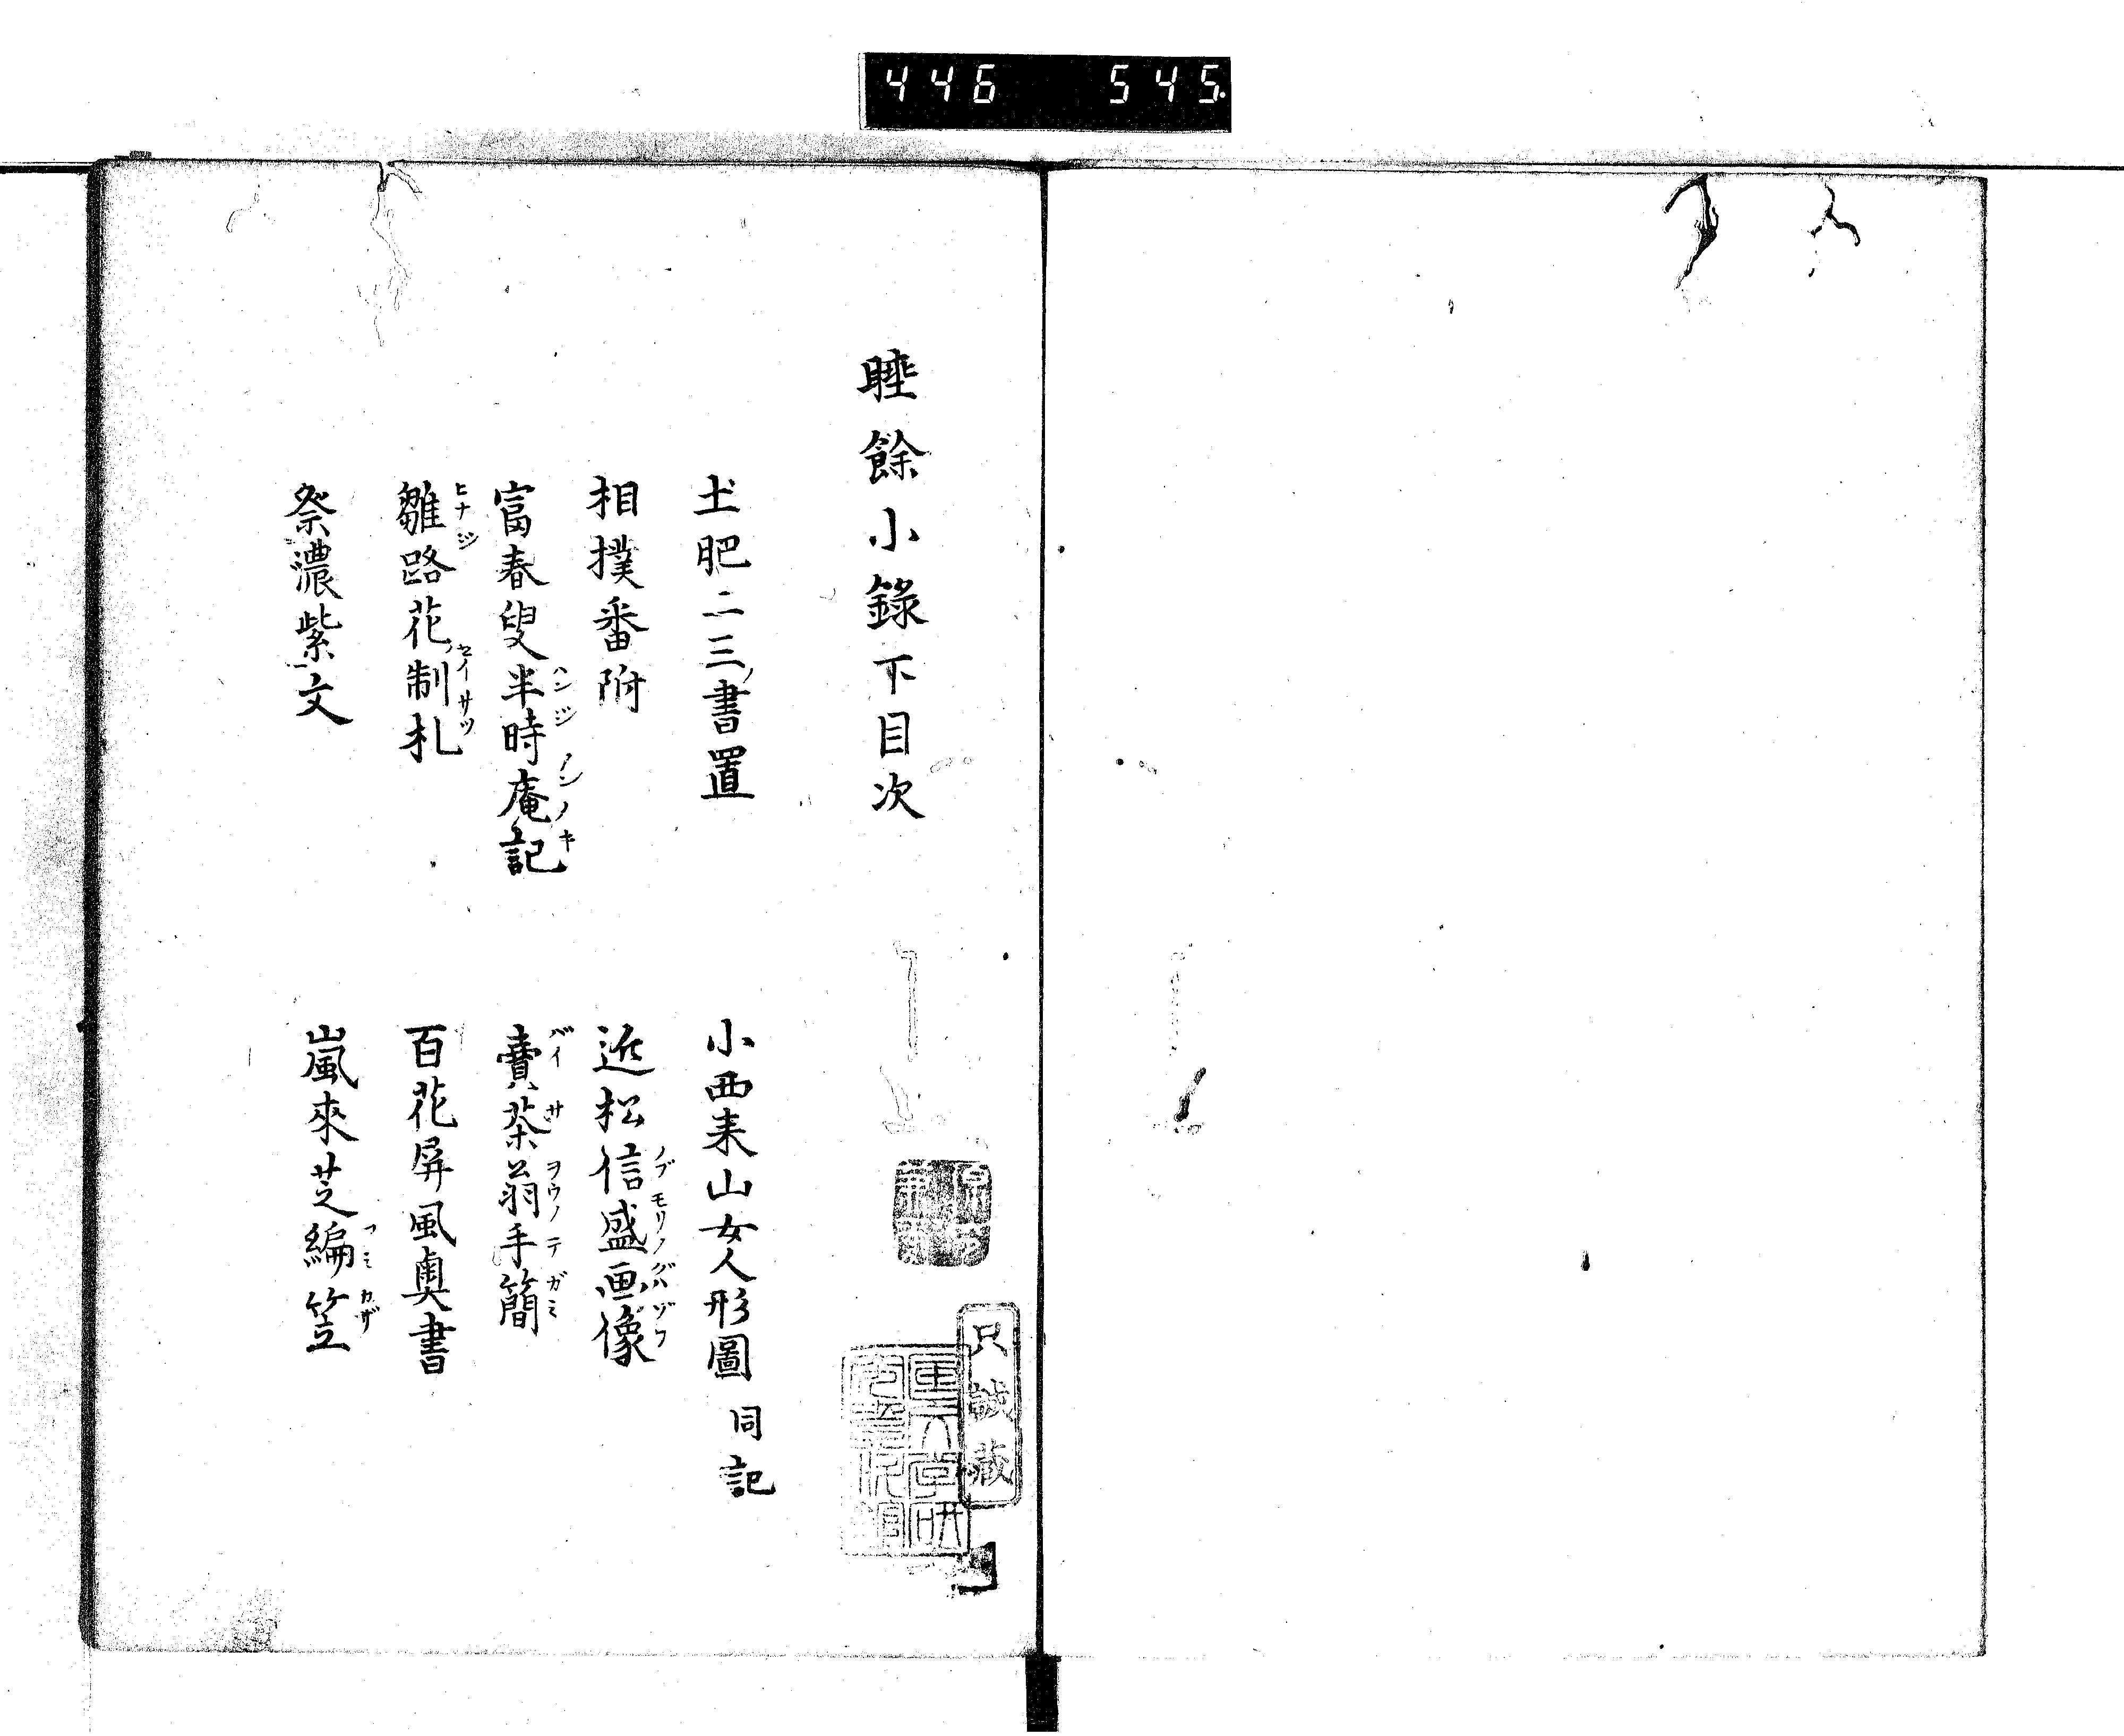 446 545.
睡餘小錄下目次
土肥二三ノ書置
小西来山女人形圖 同記
相撲番附
近松信盛画像
富春叟半時庵記
賣茶翁手簡
雛路花制札
百花屏風奥書
祭濃紫文
嵐來芝編笠
只誠蔵